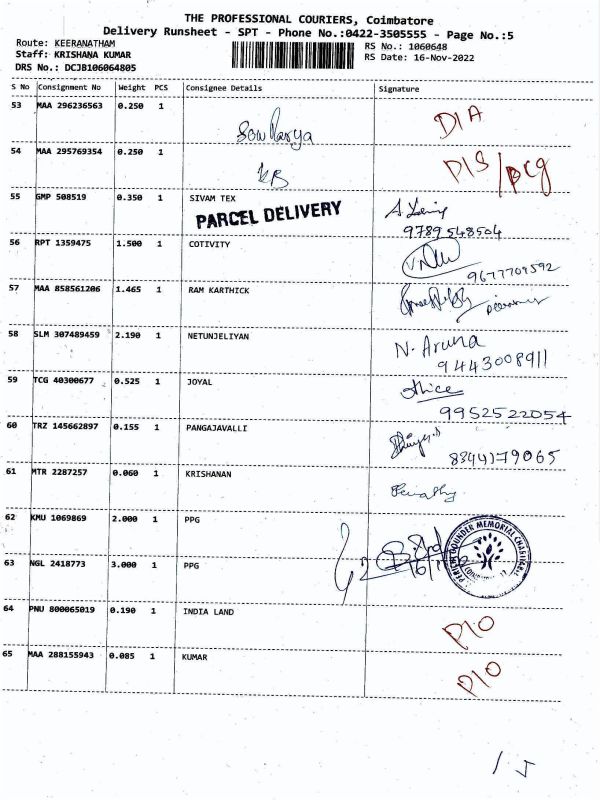 THE PROFESSIONAL COURIERS, Coimbatore
Delivery Runsheet - SPT - Phone No.:0422-3505555 - Page No.:5
Route: KEERANATHAM
RS No.: 1060648
Staff: KRISHANA KUMAR
RS Date: 16-Nov-2022
DRS No.: DCJB106064805
S No Consignment No Weight PCS Consignee Details Signature
53 MAA 296236563 0.250 1
DIA
Sowkarya
54 MAA 295769354 0.250 1
DIS/pcg
KB
55 GMP 508519 0.350 1 SIVAM TEX
PARCEL DELIVERY
9789548504
56 RPT 1359475 1.500 1 COTIVITY
9677709592
57 MAA 858561206 1.465 1 RAM KARTHICK
58 SLM 307489459 2.190 1 NETUNJELIYAN
N. Aruna
9443008911
59 TCG 40300677 0.525 1 JOYAL
9952522054
60 TRZ 145662897 0.155 1 PANGAJAVALLI
8344179065
61 MTR 2287257 0.060 1 KRISHANAN
62 KMU 1069869 2.000 1 PPG
63 NGL 2418773 3.000 1 PPG
64 PNU 800065019 0.190 1 INDIA LAND
DIO
65 MAA 288155943 0.085 1 KUMAR
DIO